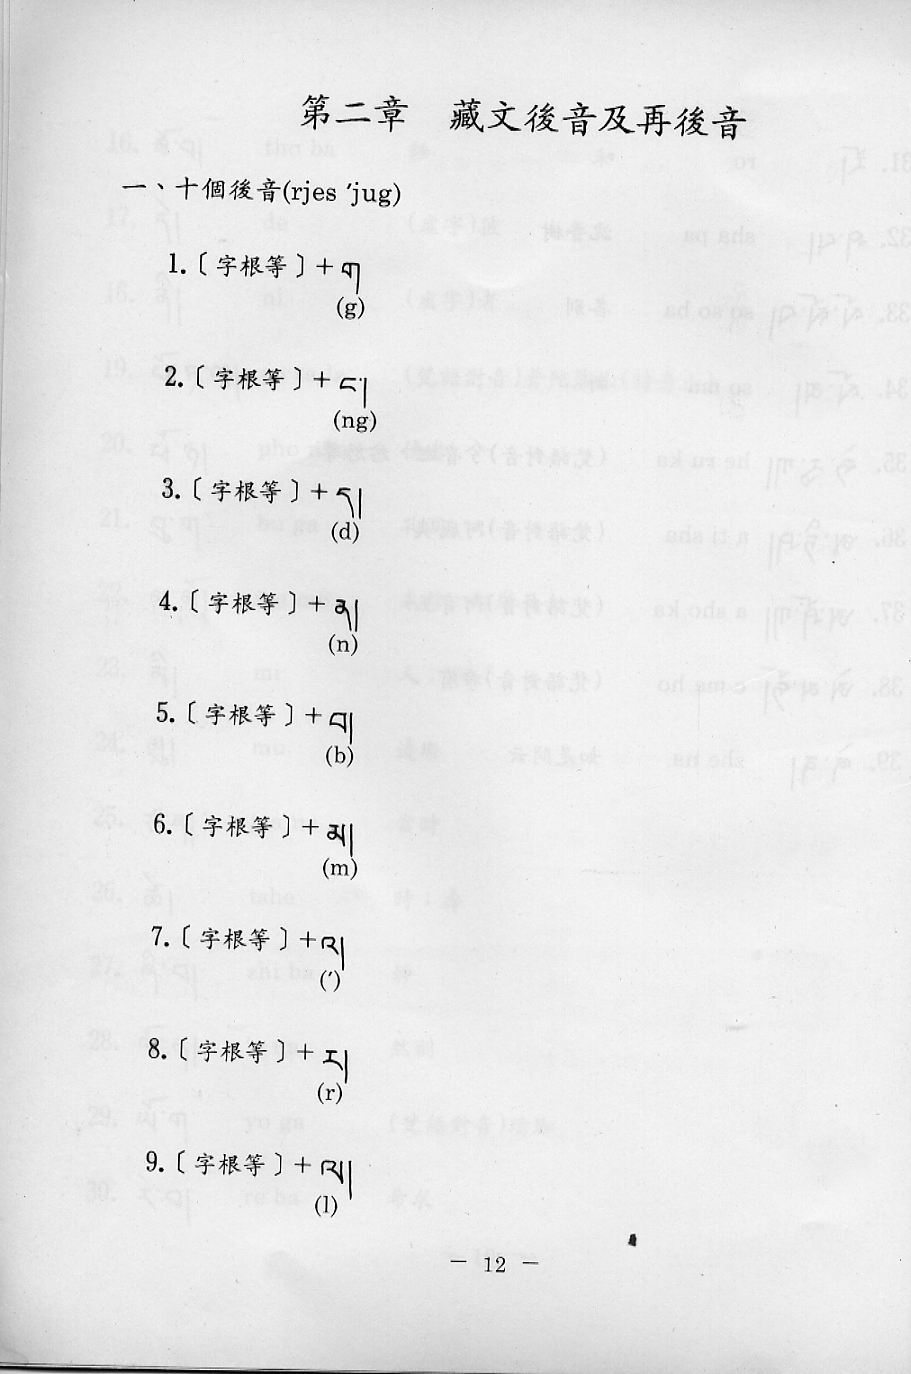 第二章　藏文後音及再後音
一、十個後音(rjes ’jug)
1.〔字根等〕+ ག
(g)
2.〔字根等〕+ ང་།
(ng)
3.〔字根等〕+ ད།
(d)
4.〔字根等〕+ ན།
(n)
5.〔字根等〕+ བ།
(b)
6.〔字根等〕+ མ།
(m)
7.〔字根等〕+ འ།
(’)
8.〔字根等〕+ ར།
(r)
9.〔字根等〕+ ལ།
(l)
— 12 —